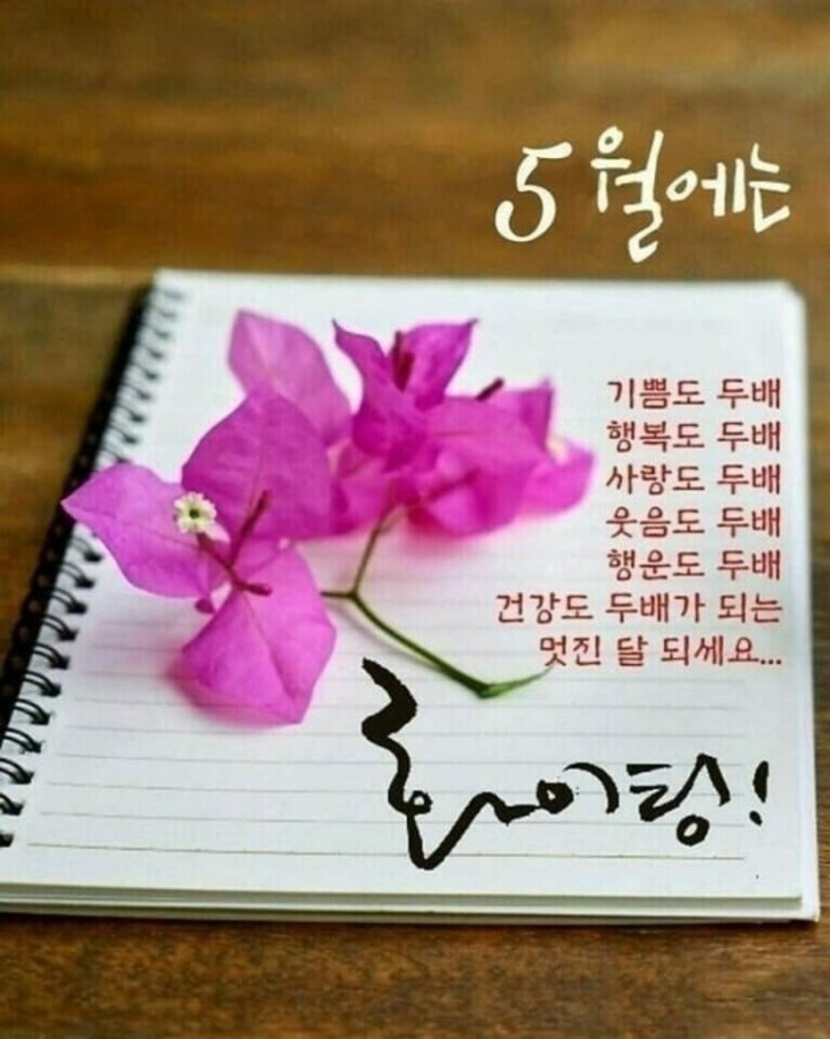 5월에는
기쁨도 두배
행복도 두배
사랑도 두배
웃음도 두배
행운도 두배
건강도 두배가 되는
멋진 달 되세요...
화이팅!